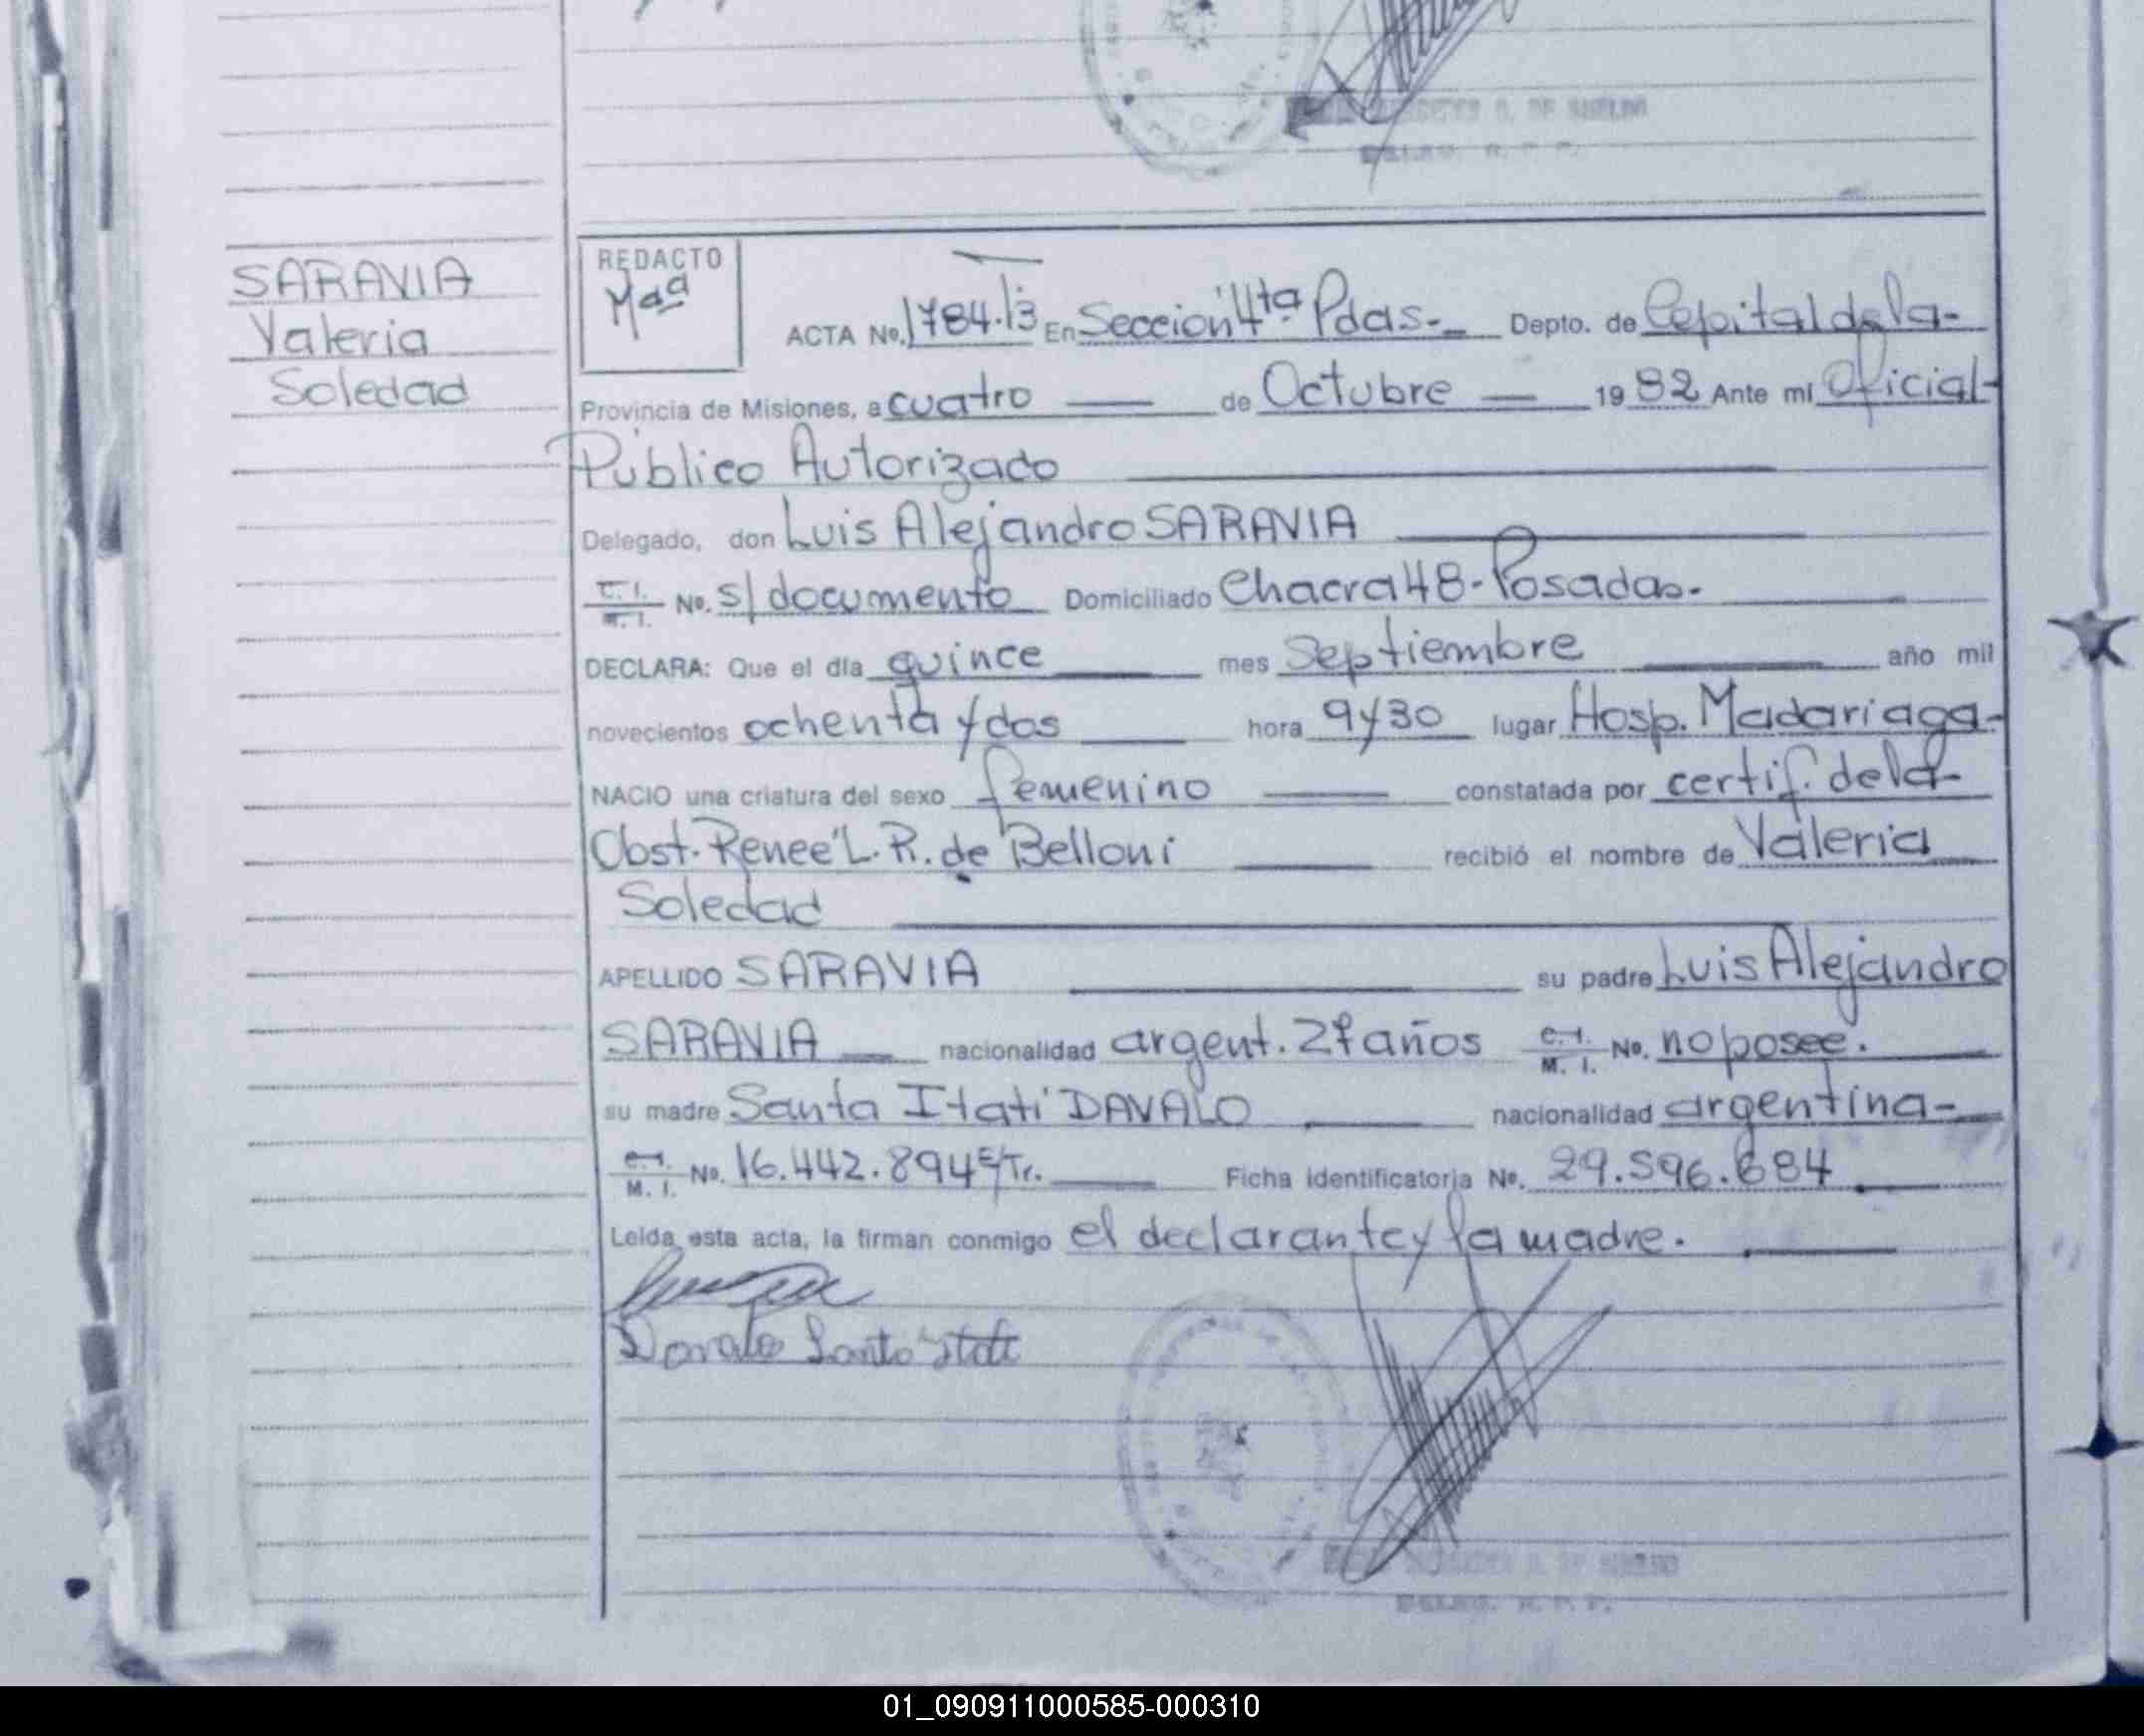 SARAVIA
Valeria
Soledad
REDACTO
ACTA No. 1784.13 En Sección 4ta Pdas.- Depto. de Capital de la-
Provincia de Misiones, a cuatro de Octubre 1982 Ante mi Oficial-
Público Autorizado
Delegado, don Luis Alejandro SARAVIA
C. I. / M. I. No. s/documento Domiciliado Chacra 48-Posadas.
DECLARA: Que el día quince mes septiembre año mil
novecientos ochenta y dos hora 9y30 lugar Hosp. Madariaga-
NACIO una criatura del sexo femenino constatada por certif. de la-
Obst. Renee L. R. de Belloni recibió el nombre de Valeria
Soledad
APELLIDO SARAVIA su padre Luis Alejandro
SARAVIA nacionalidad argent. años C. I. / M. I. No. no posee.
su madre Santa Itatí DAVALO nacionalidad argentina-
C. I. / M. I. No. 16.442.894 E/Tr. Ficha identificatoria No. 29.596.684
Leida esta acta, la firman conmigo el declarante y la madre.
Davalo Santa Itati
DELEG. R. P. P.
01_090911000585-000310